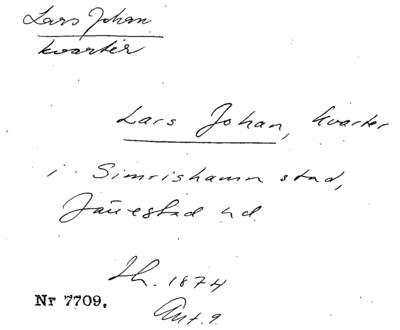 Lars Johan
kvarter
Lars Johan, kvarter
i Simrishamn stad,
Järrestad hd.
Th. 1874
Ant. 9.
Nr 7709.